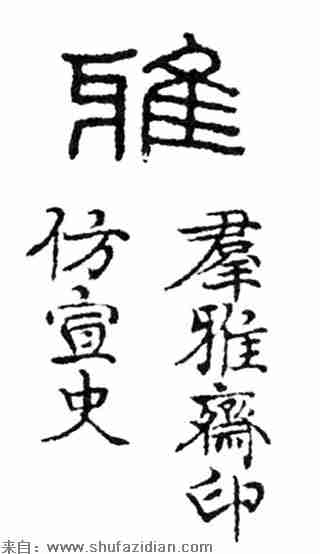 雅
羣雅齋印
仿宣史
来自：www.shufazidian.com